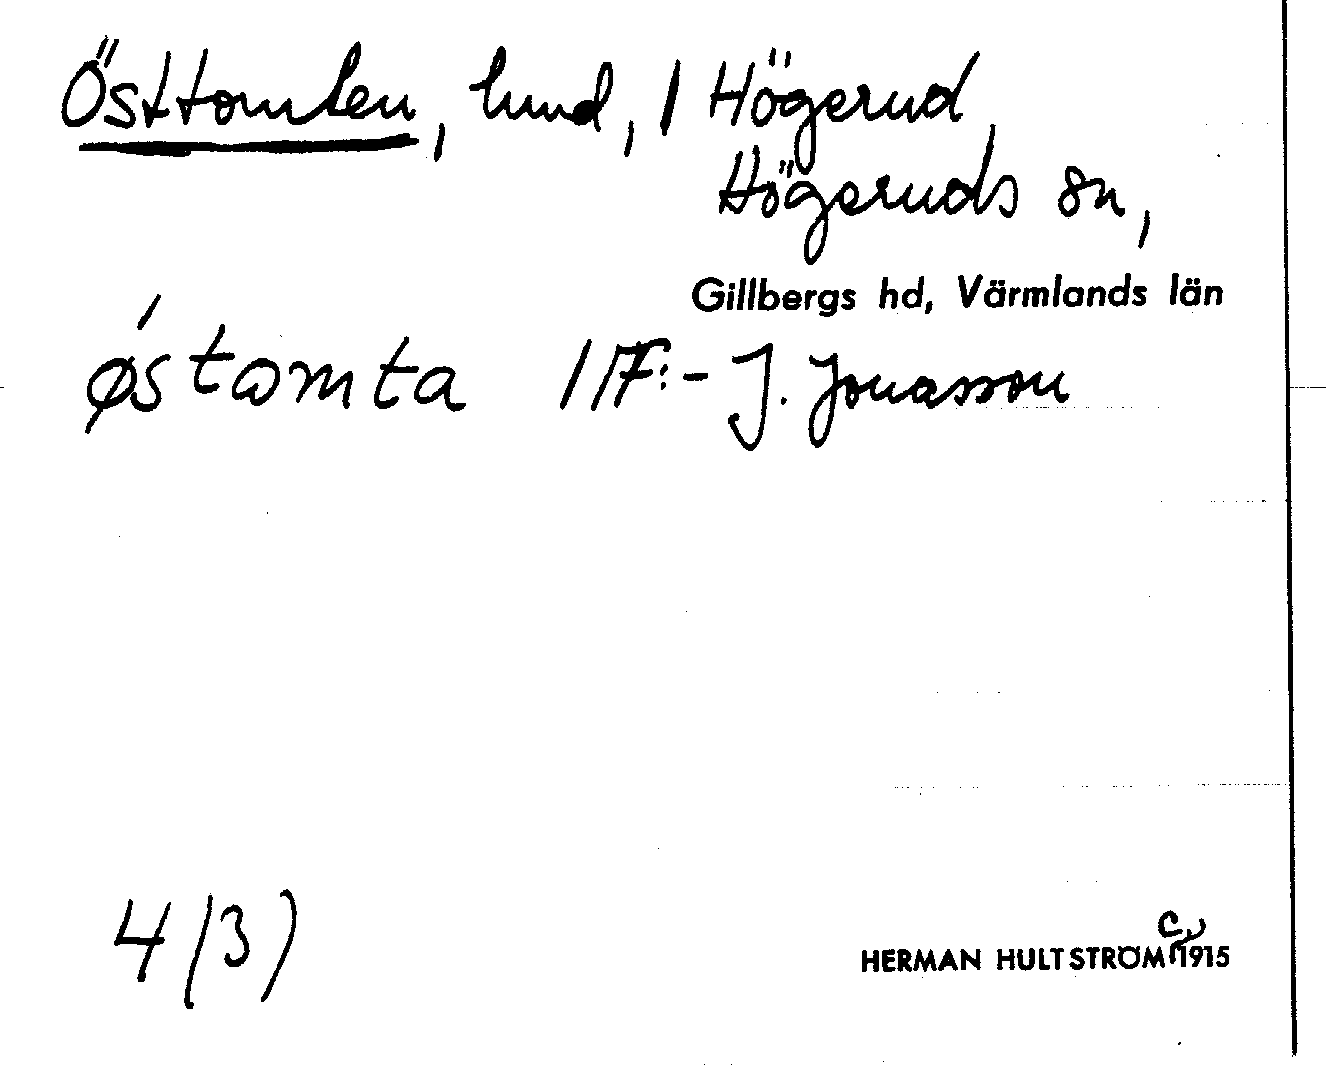 Östtomten, lund, 1 Högerud,
Högeruds sn,
Gillbergs hd, Värmlands län
/ østomta 1/F:- J. Jonasson
4 (3)
HERMAN HULTSTRÖM C. 1915